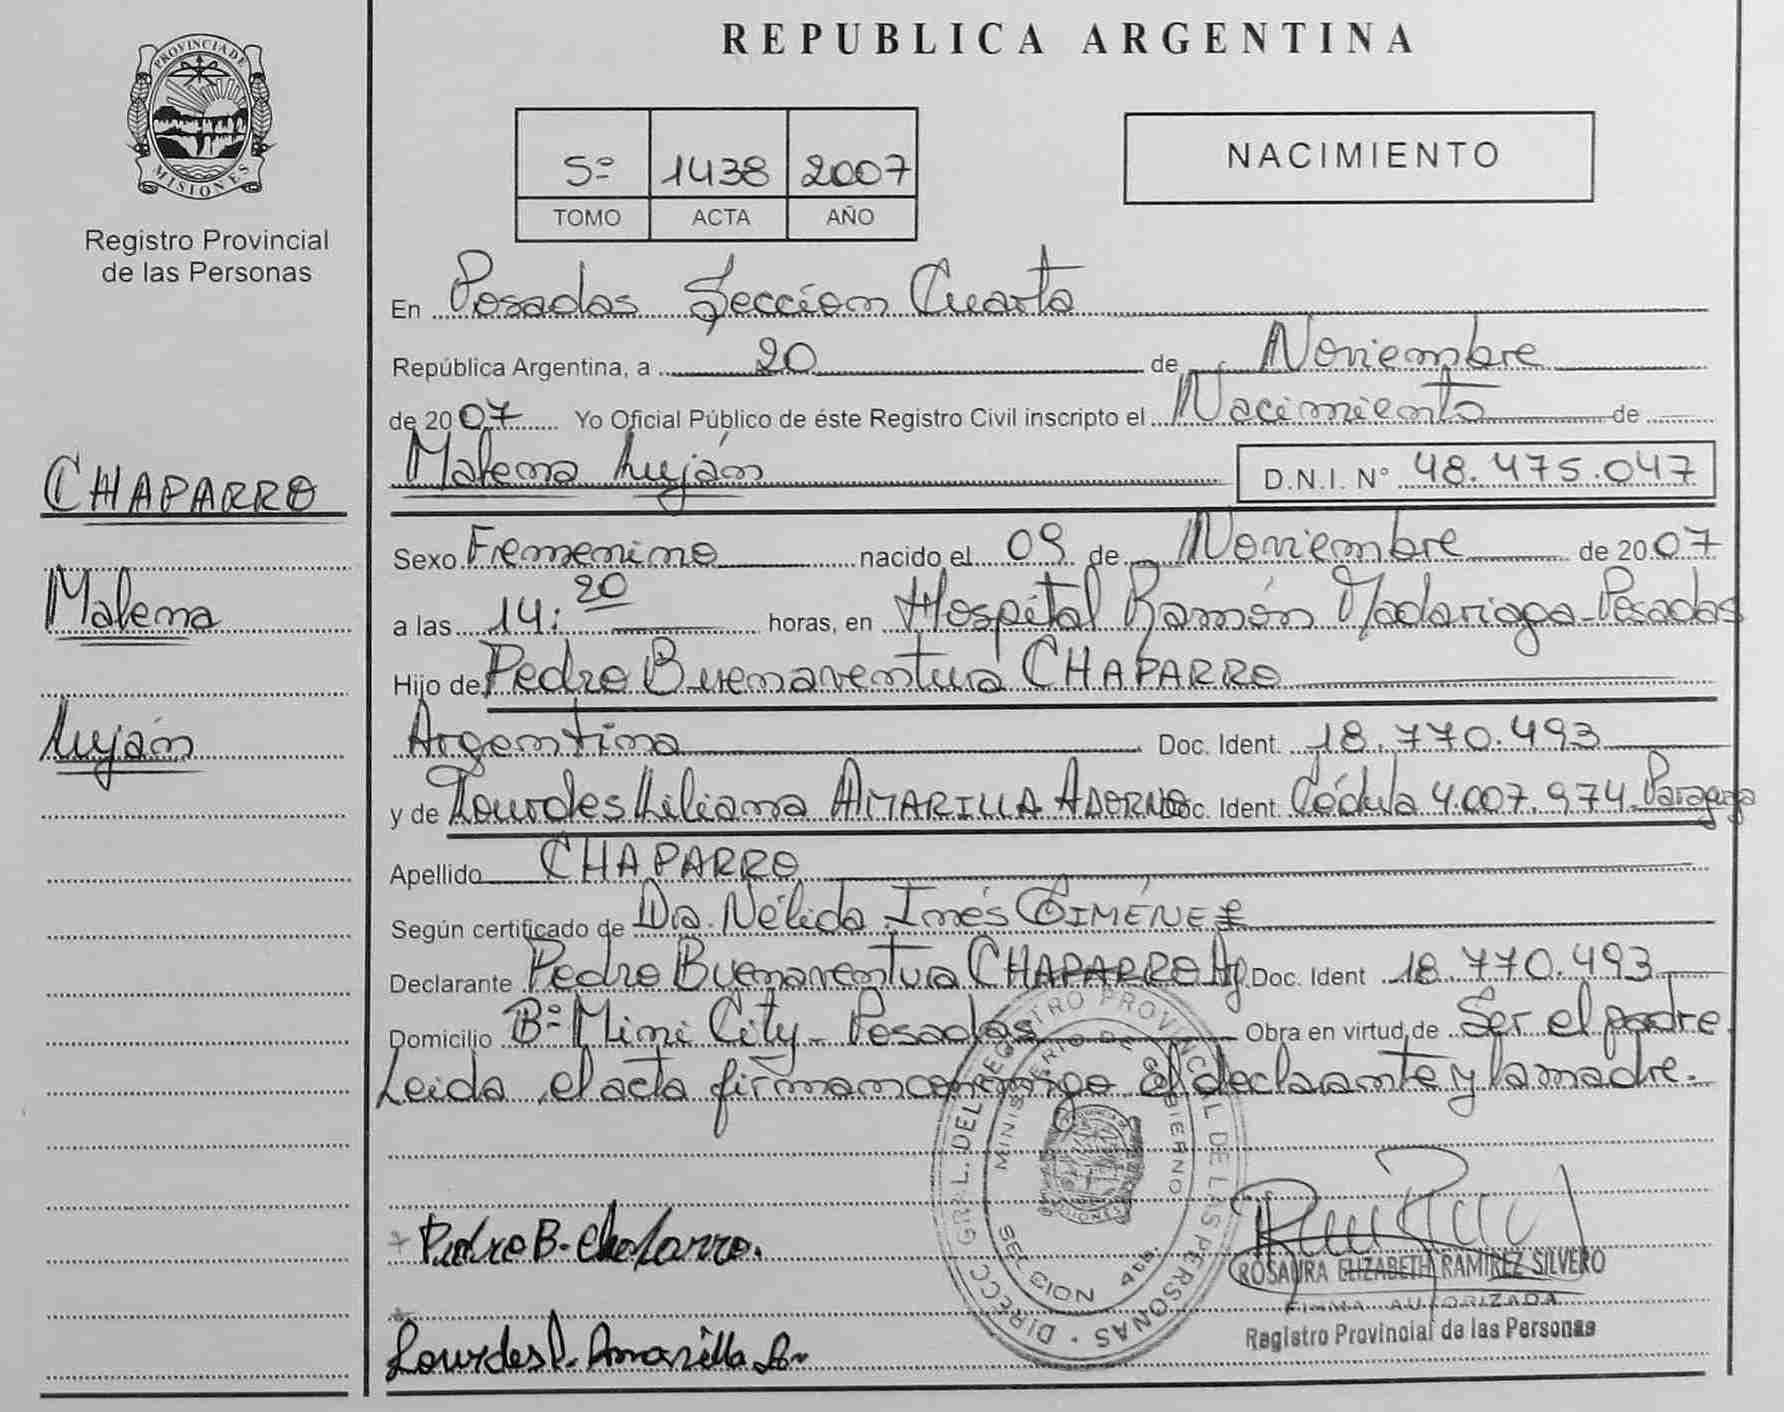 PROVINCIA DE
MISIONES
Registro Provincial
de las Personas
CHAPARRO
Malena
Luján
REPUBLICA ARGENTINA
5º 1438 2007
TOMO ACTA AÑO
NACIMIENTO
En Posadas Sección Cuarta
República Argentina, a 20 de Noviembre
de 2007 Yo Oficial Público de éste Registro Civil inscripto el Nacimiento de
Malena Luján D.N.I. Nº 48.475.047
Sexo Femenino nacido el 09 de Noviembre de 2007
a las 14:20 horas, en Hospital Ramón Madariaga - Posadas
Hijo de Pedro Buenaventura CHAPARRO
Argentina Doc. Ident. 18.770.493
y de Lourdes Liliana AMARILLA ADORNO Doc. Ident. Cédula 4.007.974 Paraguya
Apellido CHAPARRO
Según certificado de Dra. Nélida Inés GIMÉNEZ
Declarante Pedro Buenaventura CHAPARRO Ag Doc. Ident 18.770.493
Domicilio Bº Mini City - Posadas Obra en virtud de Ser el padre
Leida el acta firman conmigo el declarante y la madre.
DIRECC. GRAL. DEL REGISTRO PROVINCIAL DE LAS PERSONAS
MINISTERIO DE GOBIERNO
SECCION 4ta.
Pedro B. Chaparro.
ROSAURA ELIZABETH RAMIREZ SILVERO
FIRMA AUTORIZADA
Registro Provincial de las Personas
Lourdes L. Amarilla A.